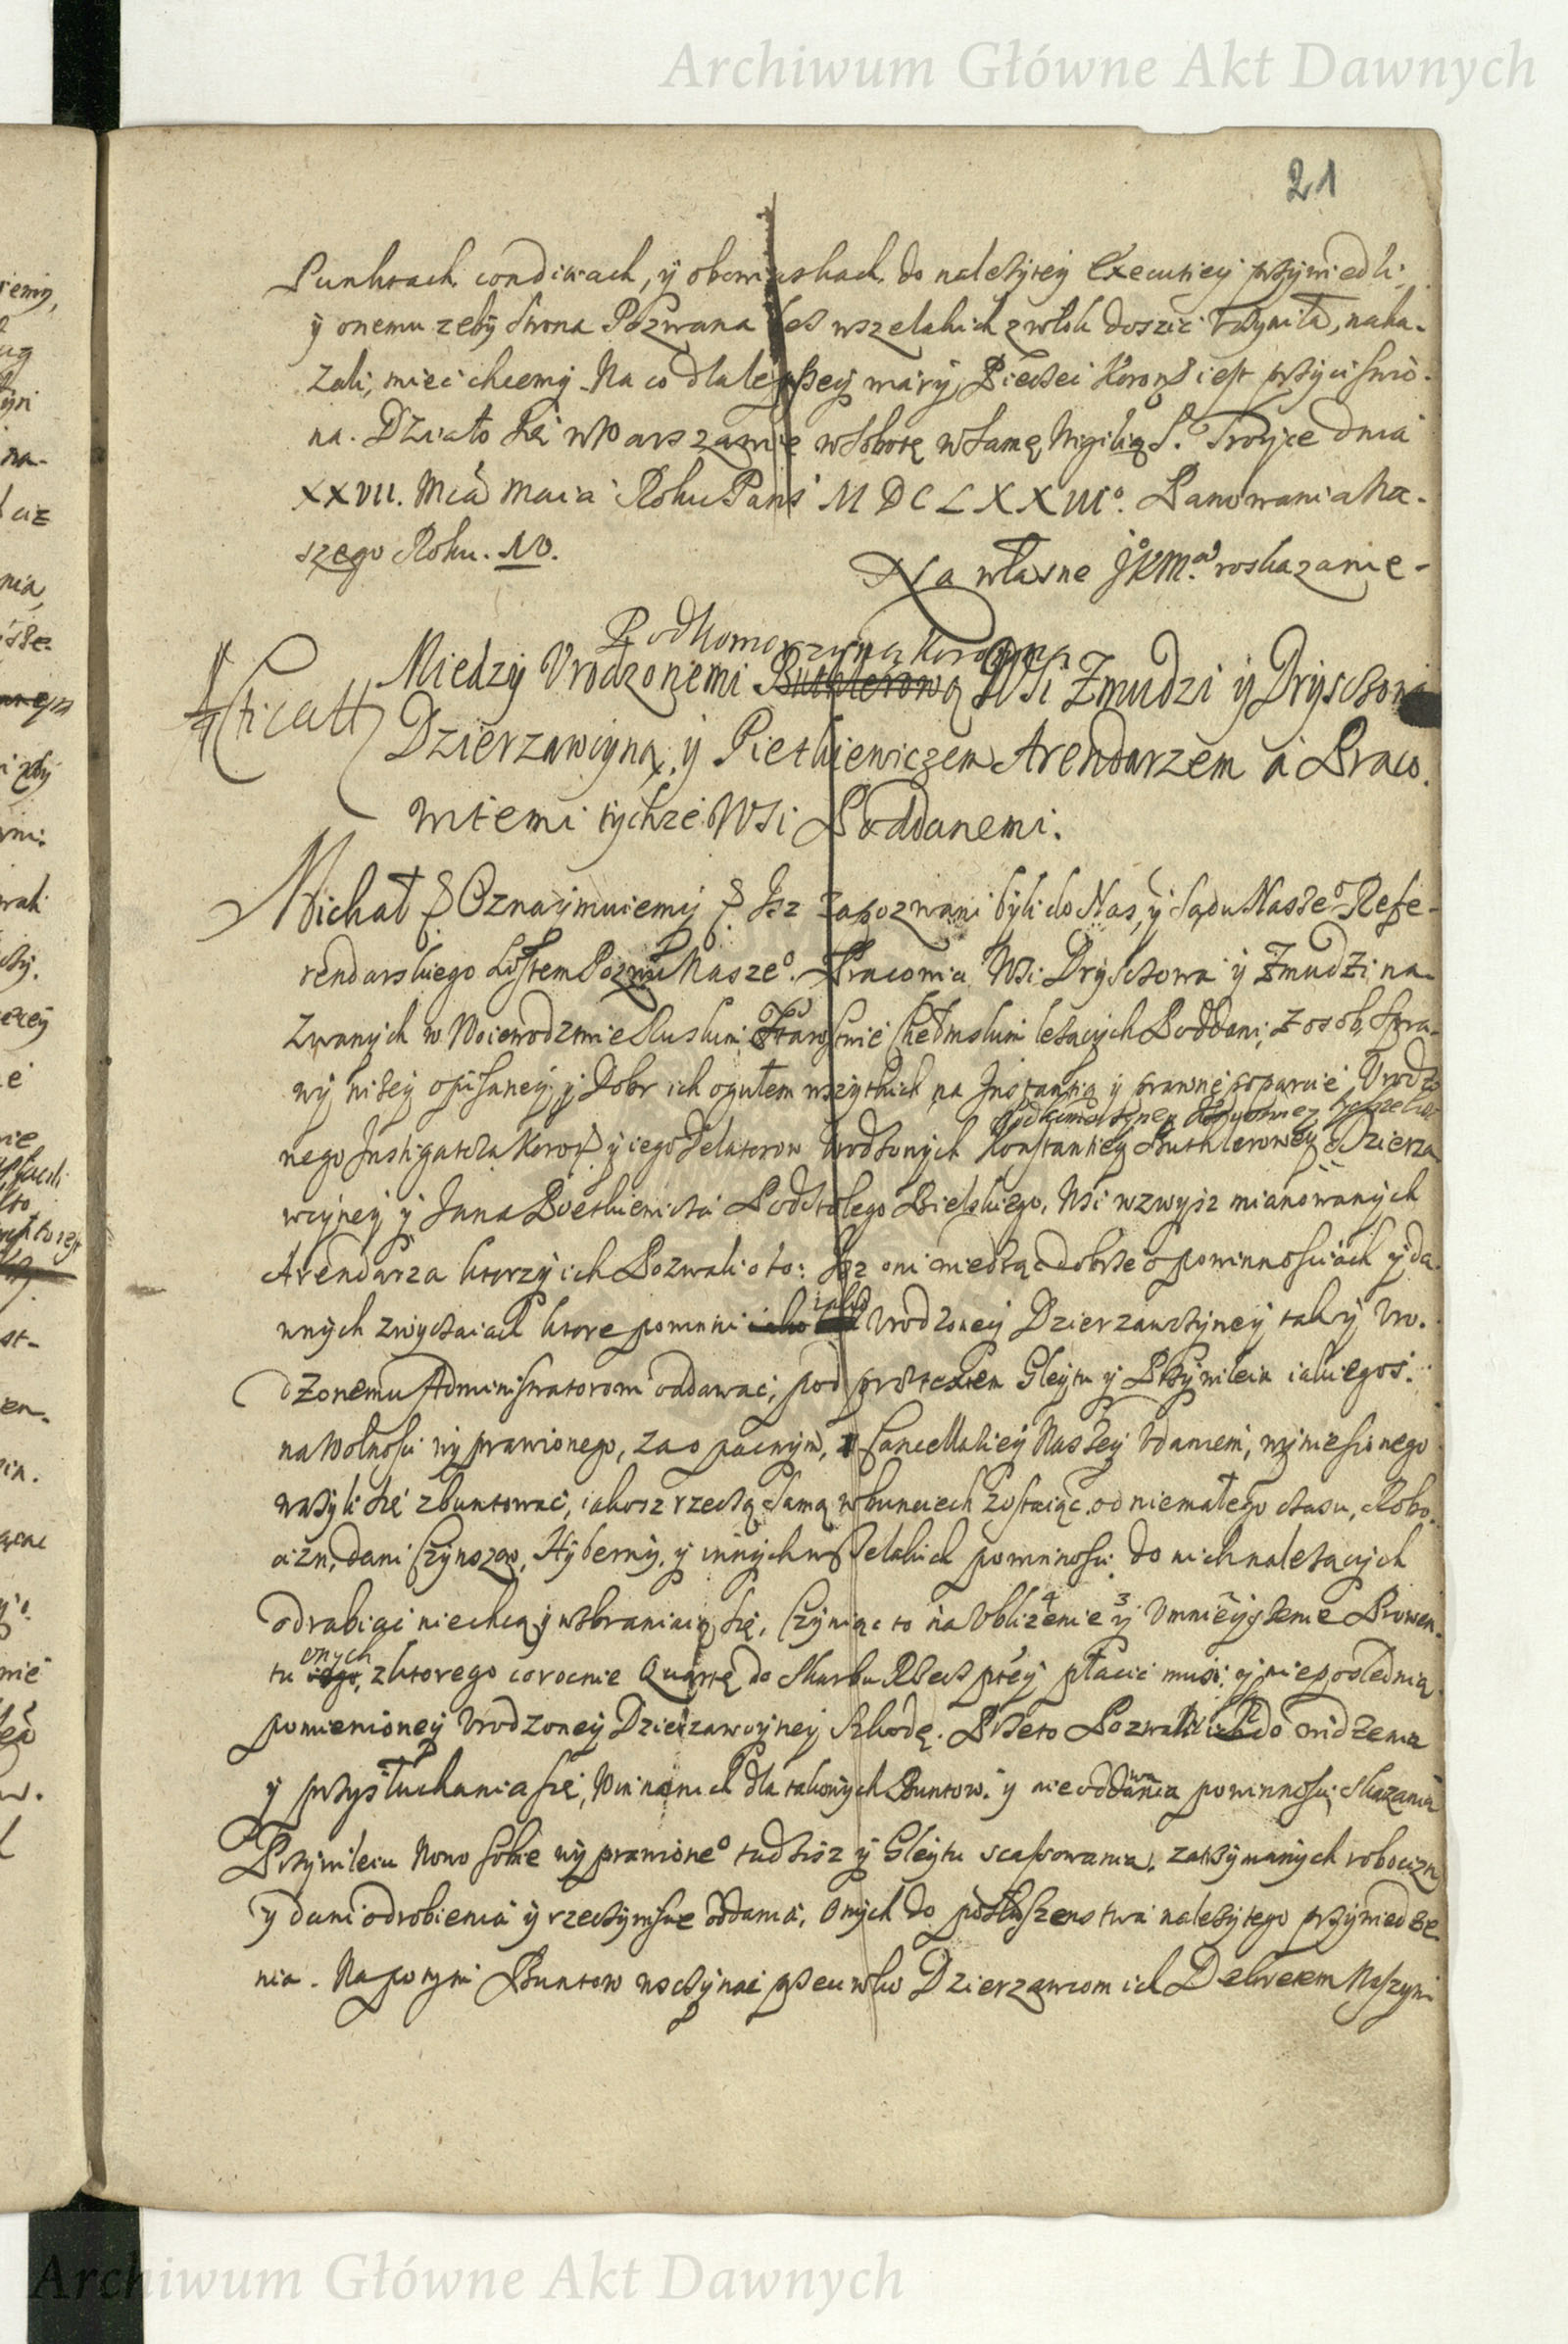 Archiwum Główne Akt Dawnych
21
Punktach condiciach, y obowiąskach do należytey Executiey przywiedli,
y onemu zeby Strona Pozwana bes wszelakich zwłok dosżic uczyniła, naka-
zali, mieć chcemy. Na co dla lepszey wiary, Pieczęć Koron iest przycisnio-
na. Działo się w Warszawie w Sobotę w samę Wigilią S. Troyce dnia
XXVII. Mca Maia Roku Pans MDCLXXIII°. Panowania Na-
szego Roku. IV.
Na własne JKMci roskazanie-
Podkomorzyną Koronną
Miedzy Vrodzonemi Buthlerową Wsi Zmudzi y Dryszczowa
Dzierzawczyną, y Pietkiewiczem Arendarzem a Praco.
witemi tychze Wsi Poddanemi.
Michał Oznaymuiemy Isz zapozwani byli do Nas, y Sądu Nasze° Refe-
rendarskiego Listem Pozwu Nasze°. Pracowici Wsi Dryszczowa y Zmudzi na-
zwanych w Woiewodztwie Ruskim Starostwie Chełmskim lezących Poddani, z osob, Spra-
wy niżey opisaney, y Dobr ich ogułem wszytkich na Instantią y prawne poparcie Vrodzo
nego Instigatora Koron y iego Delatorow Vrodzonych Konstantiey Buthlerowey Dzierza
wczyney y Jana Pietkiewicza Podstolego Bielskiego, Wsi wzwysz mianowanych
Arendarza ktorzy ich Pozwali o to: Isz oni wiedząc dobrze o powinnościach y da-
wnych zwyczaiach ktore powinni iako Vrodzoney Dzierzawczyney tak y Vro-
dzonemu Administratorowi oddawać, pod pretextem Gleytu y Przywileiu iakiegoś
na Wolnosci wyprawionego, za opacznym, Cancellariey Naszey Vdaniem, wyniesionego
ważyli się zbuntować, iakosz rzeczą samą w buntach zostaiąc od niemałego czasu, Robo-
cizn, dani Czynszow, Hyberny, y innych wszelakich powinności do nich nalezących
odrabiać niechcą y wzbraniaią się, Czyniąc to na Vbliżenie 4 y 3 Vmnieyszenie Prowen-
tu iego onych, z ktorego corocznie Quartę do Skarbu Rzeczptey płacić musi, y nieposlednią
pomienioney Vrodzoney Dzierzawczyney Szkodę. Przeto Pozwali ich do widzenia
y przysłuchania się, Win na nich dla takowych Buntow y nieoddawania powinności, Skazania
Przywileiu Nowo sobie wyprawione° tudzisz y Gleytu scassowania, zatrzymanych robocizn
y dani odrobienia y rzeczywiscie oddania, Onych do posłuszenstwa nalezytego przywiedze-
nia. Na potym Buntow wszczynać przeciwko Dzierzawcom ich Dekretem Naszym
Archiwum Główne Akt Dawnych